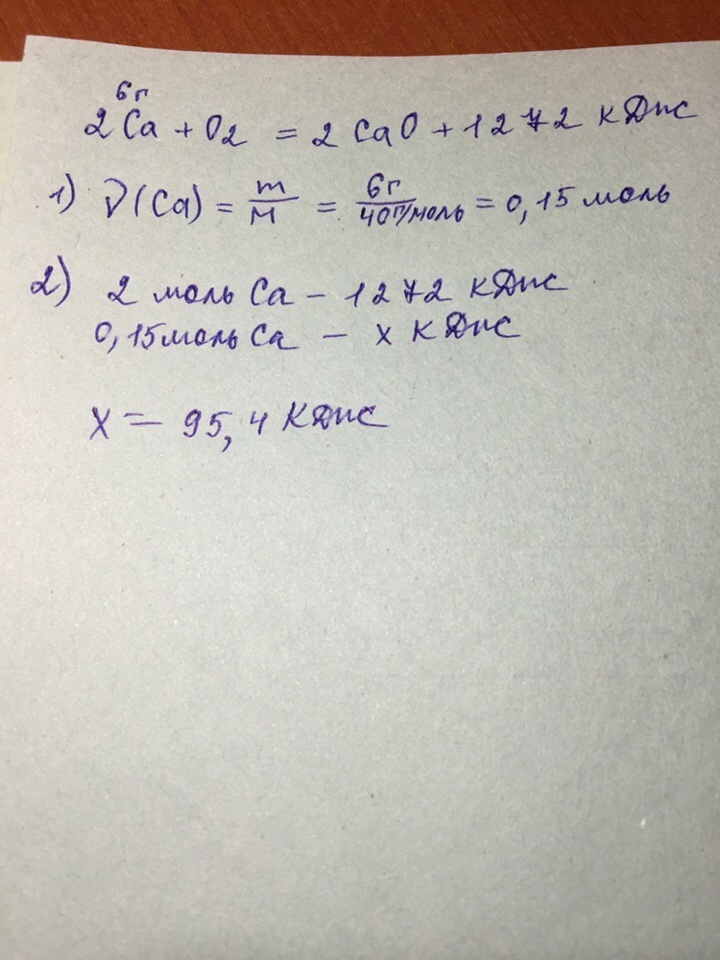 6г
2Ca + O2 = 2CaO + 1272 кДж
1) ν(Ca) = m/M = 6г/40г/моль = 0,15 моль
2) 2 моль Ca – 1272 кДж
0,15моль Ca – x кДж
X = 95,4 кДж